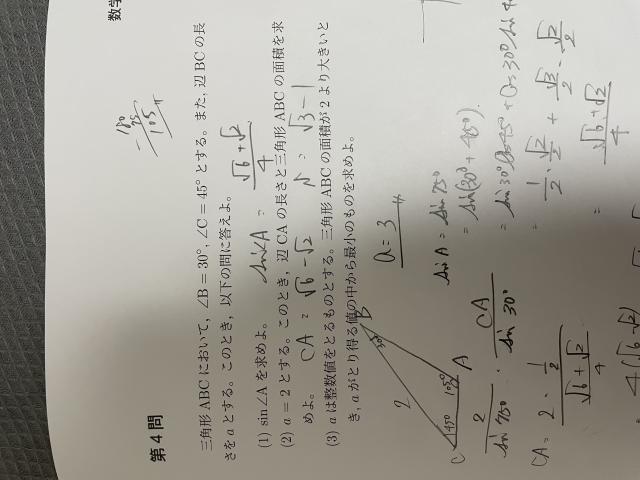 数学
第4問
三角形ABCにおいて，∠B＝30°，∠C＝45°とする。また，辺BCの長
さをaとする。このとき，以下の問に答えよ。
(1) sin∠Aを求めよ。 sin∠A = (√6+√2)/4
(2) a＝2とする。このとき，辺CAの長さと三角形ABCの面積を求
めよ。 CA = √6-√2 S = √3-1
(3) aは整数値をとるものとする。三角形ABCの面積が2より大きいと
き，aがとり得る値の中から最小のものを求めよ。
a = 3
180
- 75
105
B
30°
2
C 45° 105° A
2/sin 75° = CA/sin 30°
CA = 2・(1/2)/((√6+√2)/4)
4(√6-√2)
sin A = sin 75°
= sin(30°+45°).
= sin 30° cos 45° + cos 30° sin 4
= 1/2・√2/2 + √3/2・√2/2
= (√6+√2)/4